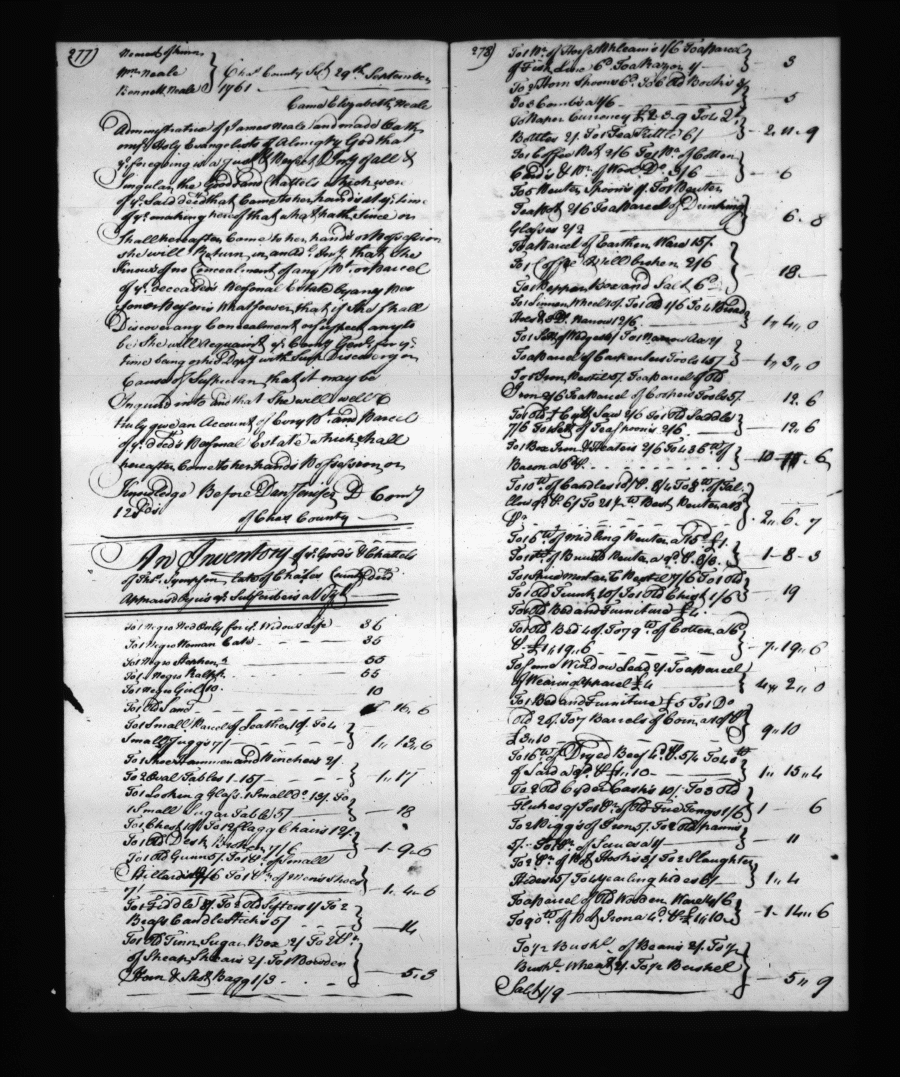 277)
Nearest of kinn
Wm. Neale
Bennett Neale
Chas. County Sct. 29th. September
1761
Came Elizabeth Neale
Administratrix of James Neale and made Oath
on ye. Holy Evangelests of Almigty God that
ye. foregoing is a Just & Perfect Invy. of all &
Singular the Goods and Chattels which were
of ye. Said decd. that Came to her hands at ye. time
of ye. making hereof that what hath Since or
Shall hereafter Come to her hands or Possession
she will Return in an add. Invy. that She
knows of no Concealment of any Pt. or Parcel
of ye. deceaseds Personal Estate by any Per
son or Persons Whatsoever that if She Shall
Discover any Concealment or suspect any to
be She will Acquaint ye. Comy. Genl. for ye.
time being or his Depy. with Such Discovery or
Cause of Suspician that it may be
Inquired into and that She will well &
truly give an Account of Every Pt. and Parcel
of ye. decds. Personal Estate which shall
hereafter Come to her hands Possession or
Knowledge Before Dan Jenifer D Comy
of Chas County
An Inventory of ye. Goods & Chattels
of Thos. Sympson late of Charles County decd.
Appraised by us ye. Subscribers
To 1 Negro Ned Only for ye. Widows Life 36
To 1 Negro Woman Cate 35
To 1 Negro Stephen 55
To 1 Negro Ralph 55
To 1 Negro Girl 10 10
To 1 Old 16. 6
To 1 Small Parcel of Leather To 4
Small Juggs 7/ 1,, 13,, 6
To 1 Shoe Hammer and Pinchers 2/
To 2 Oval Tables 1. 15/ 1,, 17
To 1 Looking Glass 1 Small do. 13/ To
1 Small Sugar Table 5/ 18
To 1 Chest 10/ To 12 flagg Chairs 12/
To 1 Old Desk Broken 7/6 1. 9. 6
To 1 Old Gunn 5/ To 1 of Small
Stillards 7/6 To 1 Pr. of Mens Shoes
7/ 1. 4. 6
To 1 Fiddle 8/ To 2 Old Sifters 1/ To 2
Brass Candlesticks 5/ 14
To 1 Old Tinn Sugar Box 2/ To 2 Pr.
of Sheap Shears 2/ To 1 Powder
Horn & Shot Bagg 1/3 5. 3
278)
of Fish Line 6d. To a Razor 1/ 3
To 2 Horn Spoons 6d. To 6 Old Books 3/
5
To Paper Currency £ 2. 3. 9 To 4 Qt.
Bottles 2/ To 1 Tea Kittle 6/ 2. 11. 9
To 1 Coffee Pot 2/6 To 1 Pr. of Cotton
Cards & Pr. of Wool Do. 3/6 6
To 5 Pewter Spoons To 1 Pewter
Teapott 2/6 To a Parcel of Drinking
Glasses 2/2 6. 8
To a Parcel of Earthen Ware 15/
To 1 Coffee Mill broken 2/6
To 1 Pepper Box and Salt 6d. 18
To 1 Linnen Wheel 10/ To 1 Old 1/6 To 4 Broad
Axes & 2 Do. Narrow 12/6 1,, 4,, 0
To 1 Sett of Wedges To 1 Narrow Ax 1/
To a Parcel of Carpenters Tools 15/ 1,, 3,, 0
To 1 Iron Pestil 5/ To a Parcel of Old
Iron 2/6 To a Parcel of Coopers Tools 5/ 12. 6
To 1 Old + Cutt Saw 2/6 To 1 Old Saddle
7/6 To 1 Sett of Tea spoons 2/6 12,, 6
To 1 Box Iron & Heaters 2/6 To of
Bacon a 6d. 6
To 10 of Candles To 8 of Tal
low To Best Pewter
2,, 6. 7
of midling Pewter £1.
of Burnt Pewter a 9d. 1- 8- 3
To 1 Spice Morter & Pestil 7/6 To 1 Old
To 1 Old Trunk 10/ To 1 Old Chest 1/6 19
To 1 Old Bed and Furniture £4
To 1 Old Bed 40/ To 79 of Cotten a 6d
£1,, 19,, 6 7,, 19,, 6
To Some Window Lead 2/ To a Parcel
of Wearing Apparel £4 4,, 2,, 0
To 1 Bed and Furniture £5 To 1 Do
Old 20/ To 7 Barrels of Corn a 10/
£3,, 10 9,, 10
To 16 of Dryed Beef 4d. 5/4 To 40
of Lard £1,, 10 1,, 15,, 4
To 2 Old Cyder Casks 10/ To 3 Old
Flukes To Old Fire Tongs 1/6 1 6
To 2 Piggs of Iron 5/
11
To 2 Pr. of Pot Hooks 8/ To 2 Slaughter
Hides 15/ To 4 yearling hides 6/ 1,, 4
To a Parcel of Old Wooden Ware 4/6
To 90 of Pot Irons 4d. £1,, 10 1- 14,, 6
To ½ Bushl. of Beans 2/ To ½
Bushl. Wheat 2/ To ½ Bushel
Salt 1/9 5,, 9